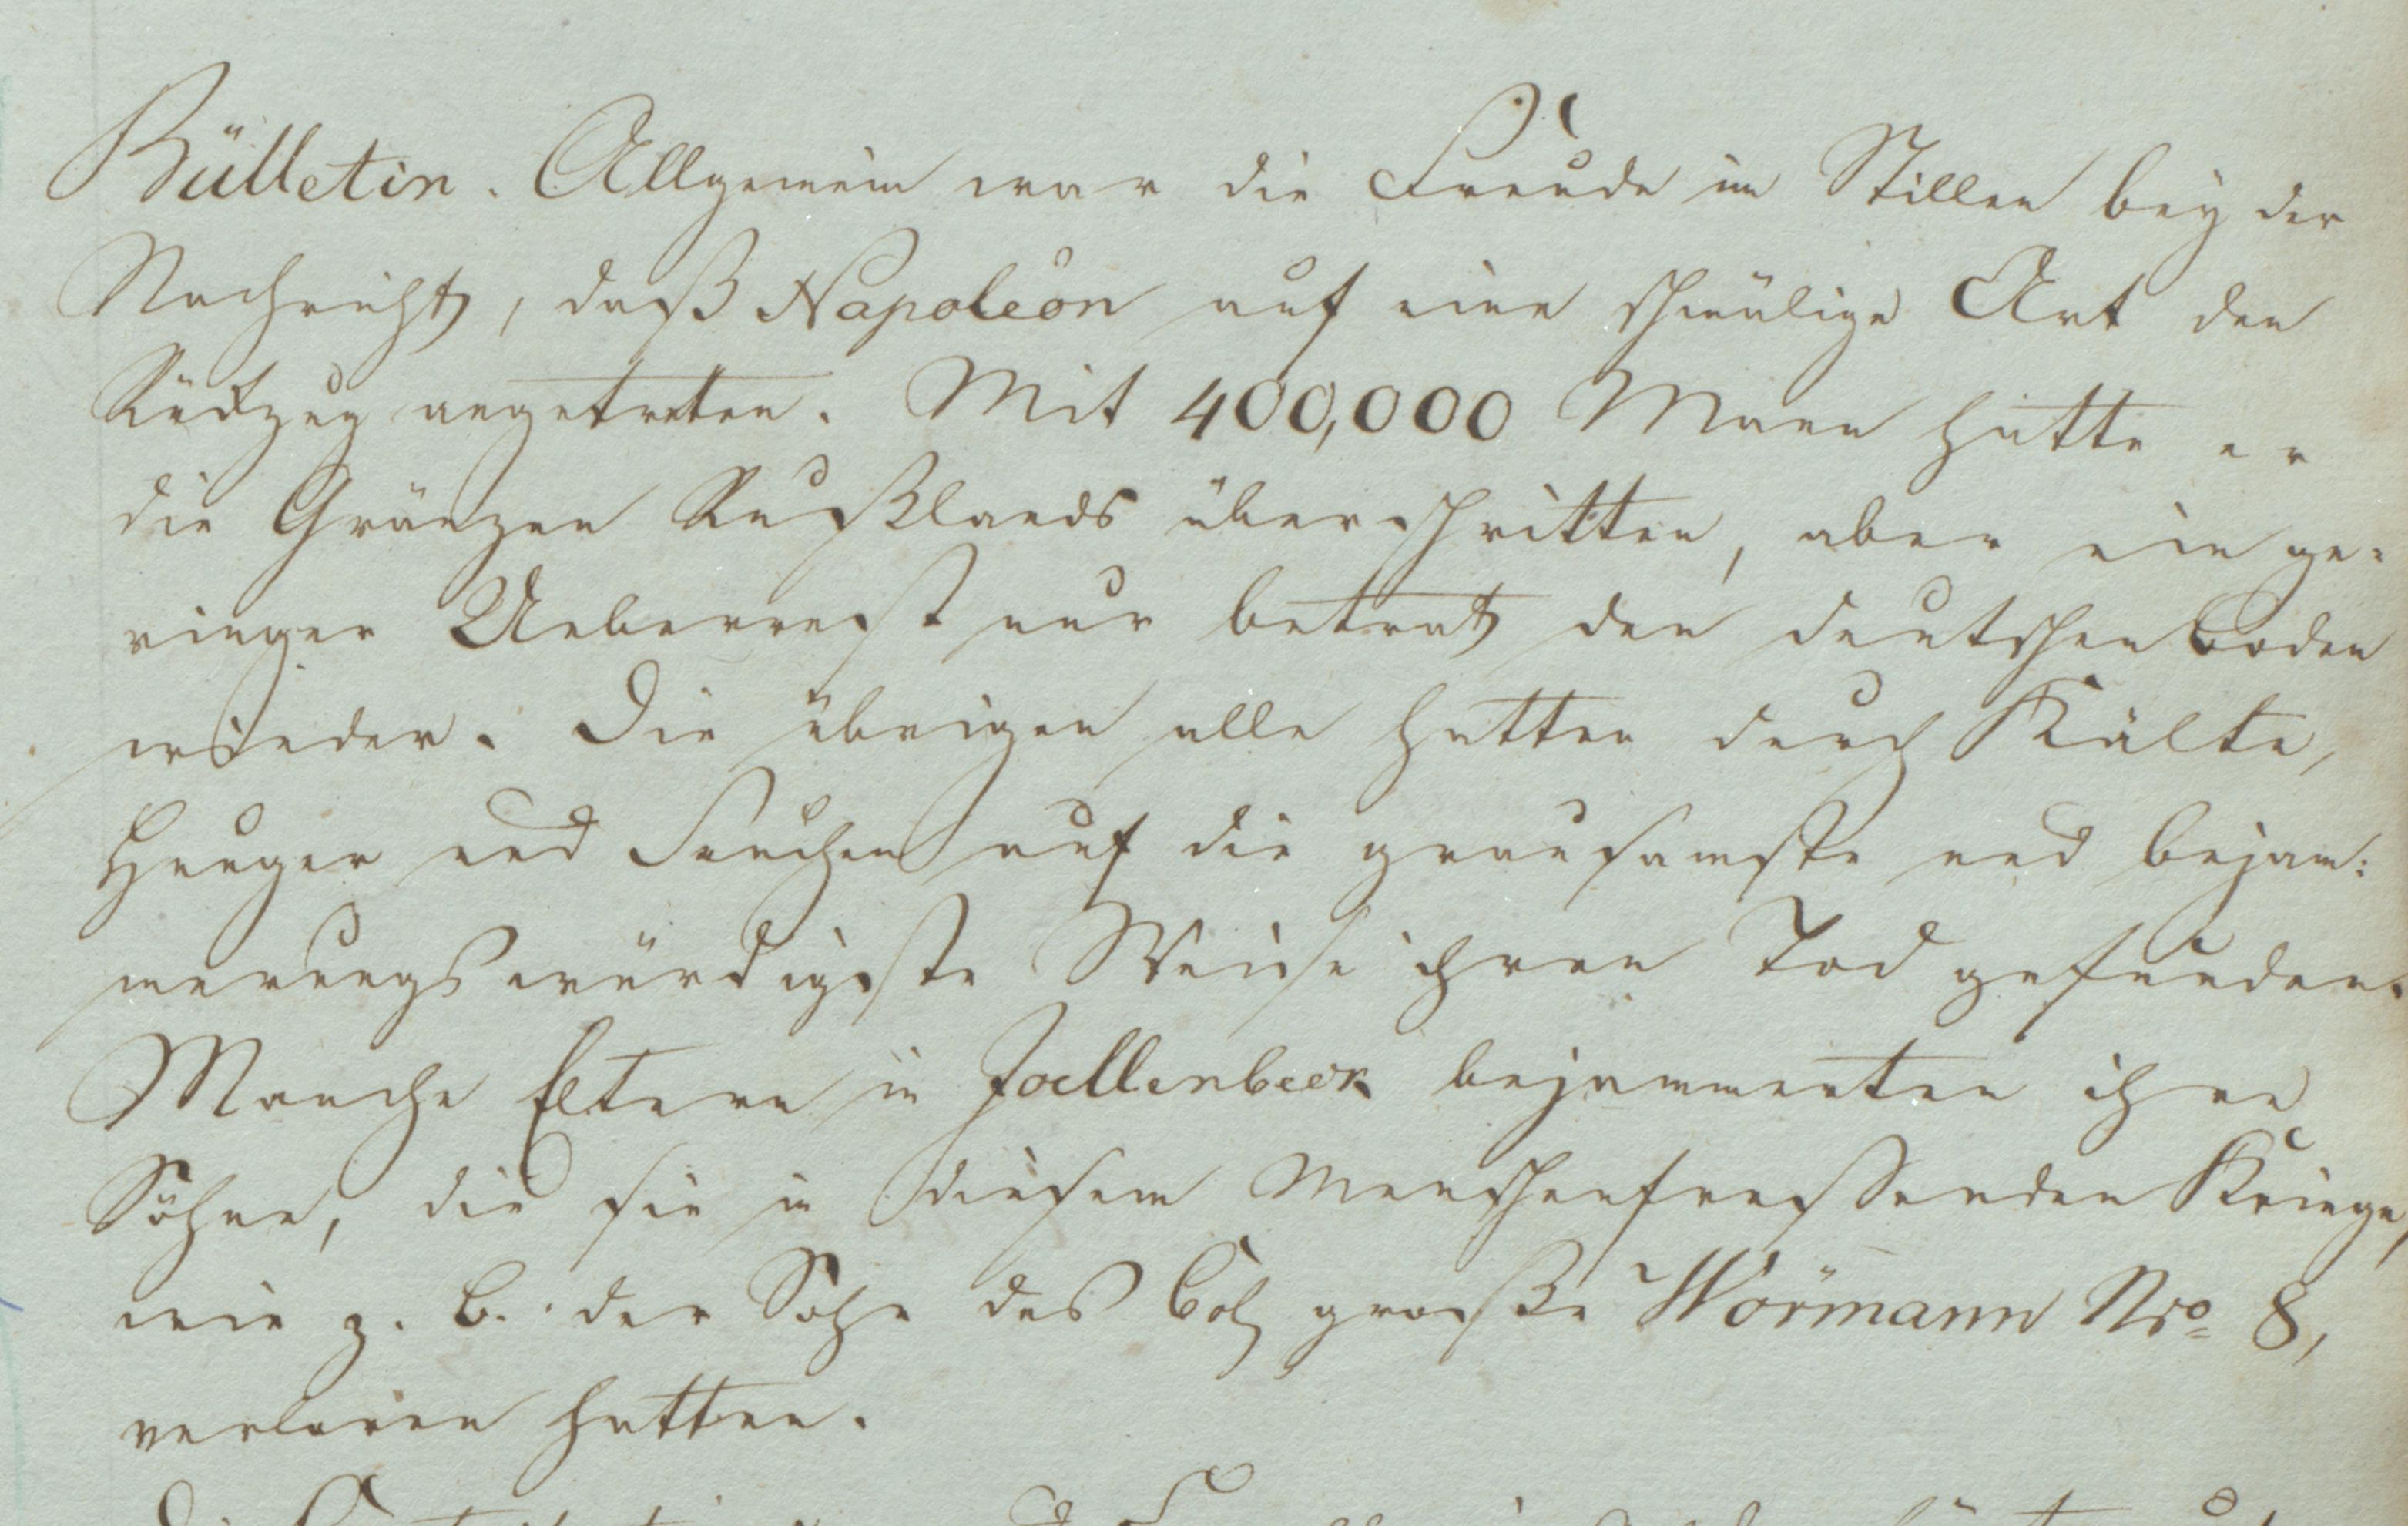 Bülletin. Allgemein war die Freude im Stillen bey der
Nachricht, daß Napoleon auf eine schmälige Art den
Rückzug angetreten. Mit 400,000 Mann hatte er
die Gränzen Rußlands überschritten, aber ein ge-
ringer Ueberrest nur betrat den deutschen Boden
wieder. Die übrigen alle hatten durch Kälte,
Hunger und Seuchen auf die grausamste und bejam:
merungswürdigste Weise ihren Tod gefunden.
Manche Eltern in Joellenbeck bejammerten ihre
Söhne, die sie in diesem Menschenfreßenden Kriege,
wie z. B. der Sohn des Col große Wörmann Nro 8,
verloren hatten.